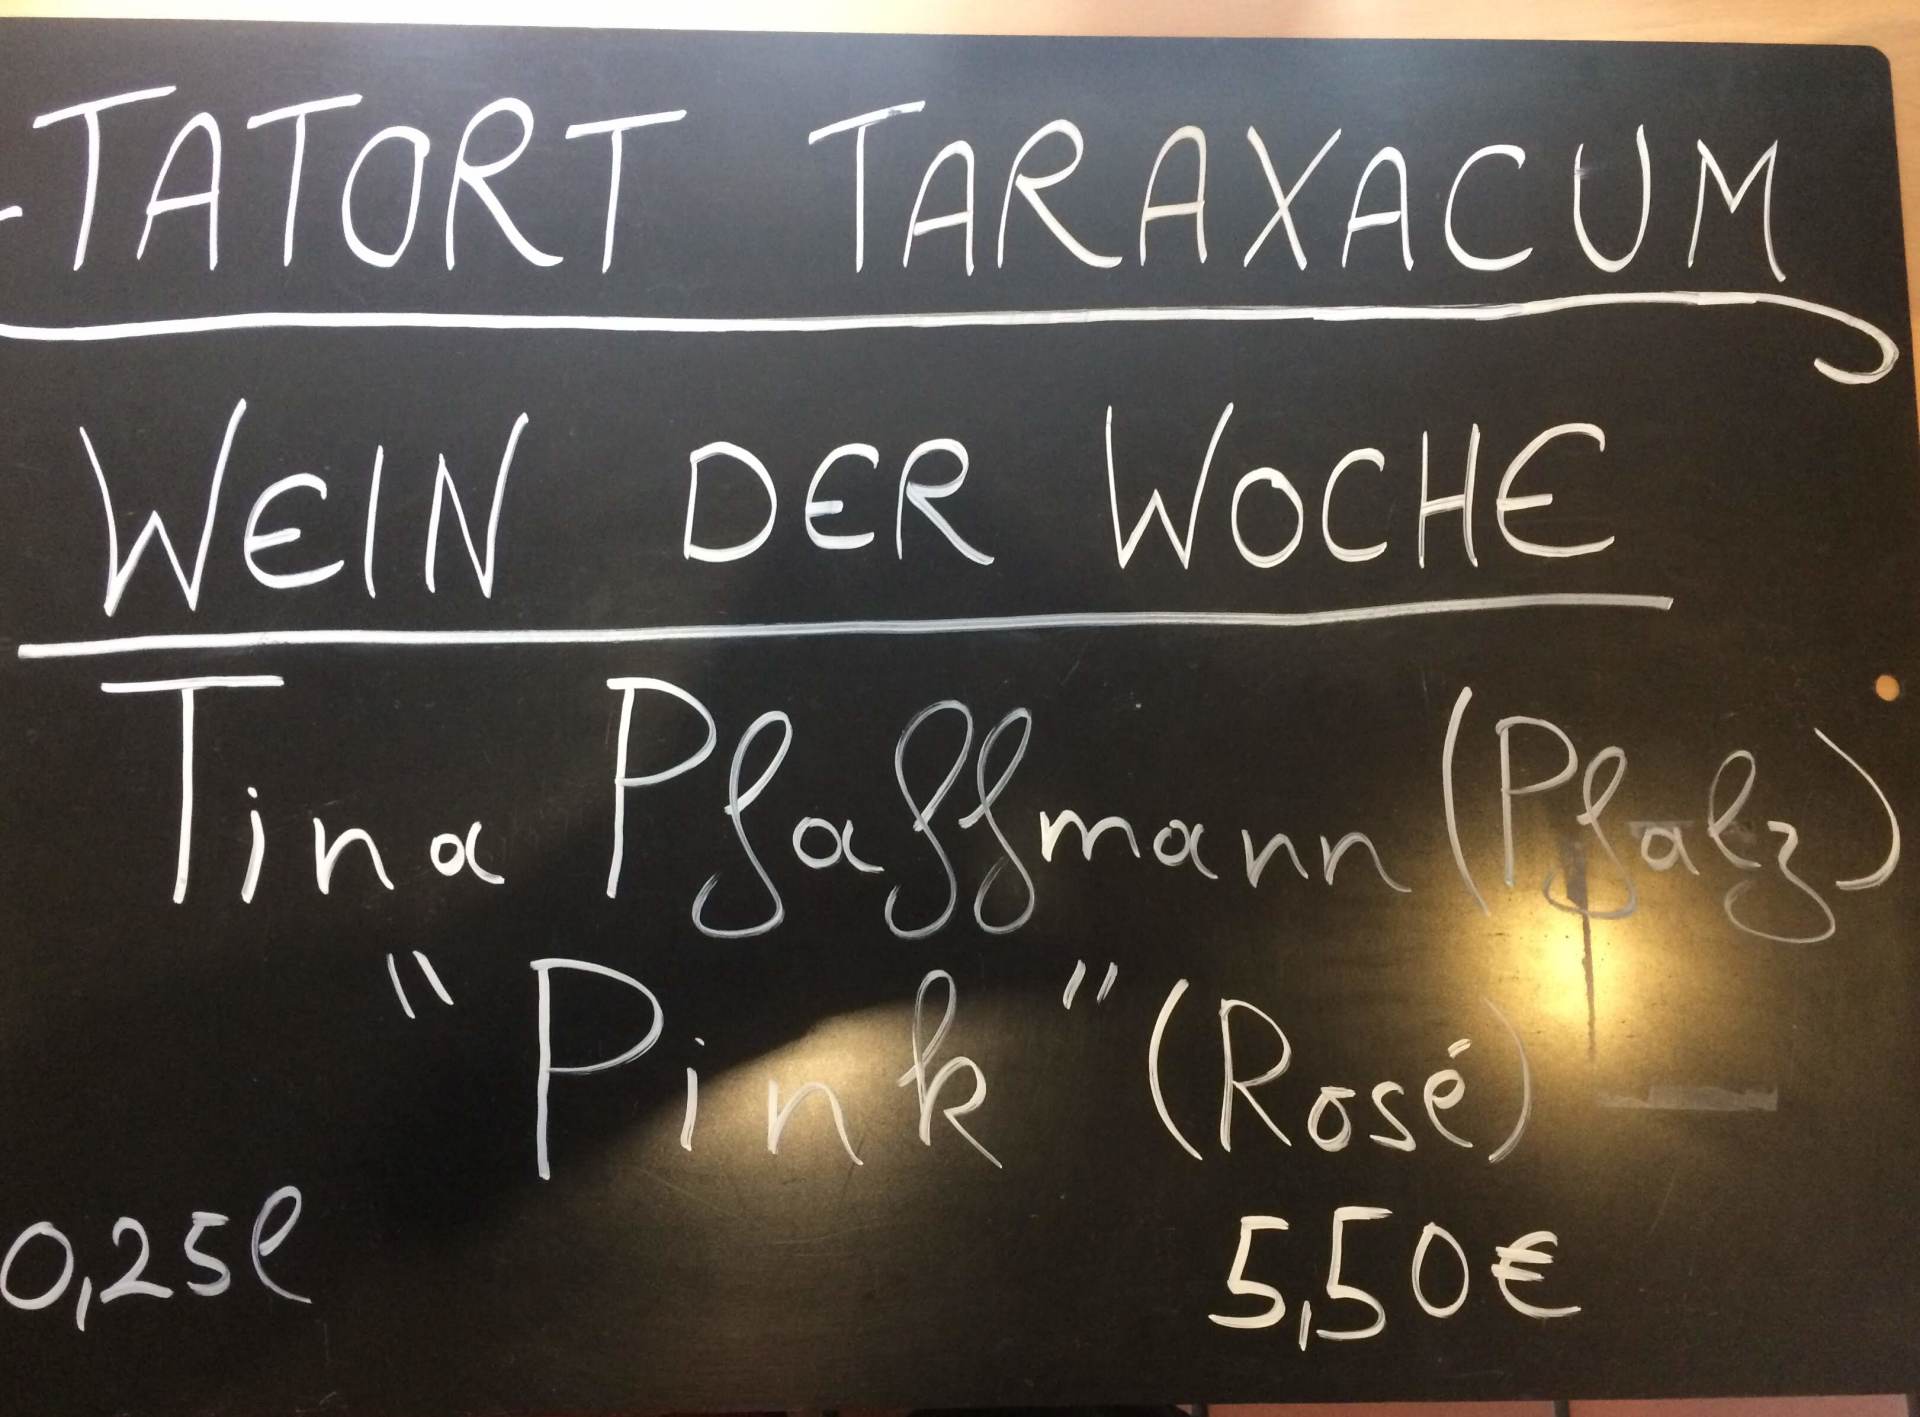 -TATORT TARAXACUM
WEIN DER WOCHE
Tina Pfaffmann (Pfalz)
"Pink" (Rosé)
0,25l 5,50€